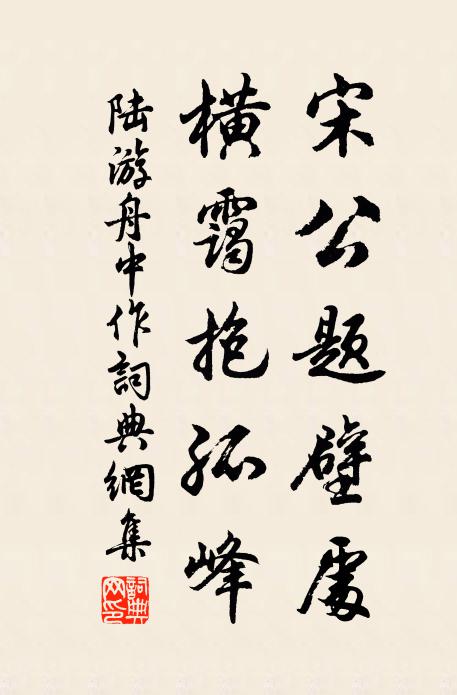 宋公題壁處
橫靄抱孤峰
陸游舟中作詞典網集
詞典網印